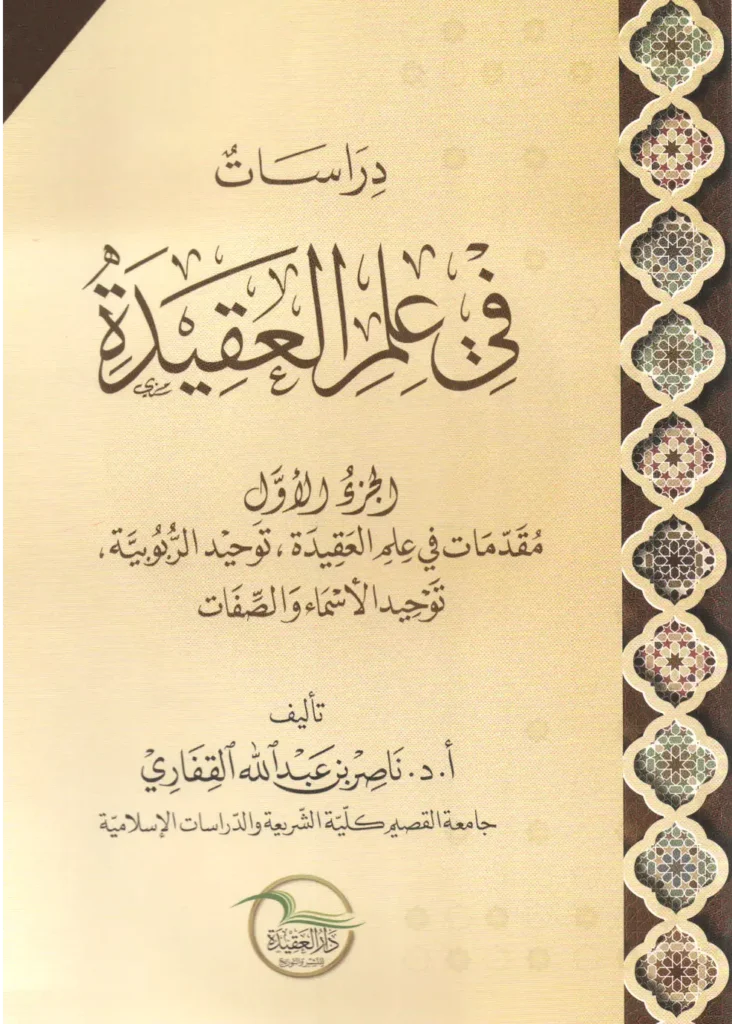 دِرَاسَاتٌ
فِيْ عِلِمِ العَقِيْدَةِ
الجزءُ الأوَّل
مُقَدّمَات في عِلمِ العَقِيدَة، تَوحِيْد الرُّبُوبيَّة،
تَوْحِيد الأسْمَاء وَالصِّفَات
تأليف
أ.د. نَاصِرْ بن عَبْد اللّٰه القِفَارِيْ
جامعة القصيم كلّيّة الشّريعة والدّراسات الإسلاميّة
دَارُ العَقِيْدَة
للنشر والتوزيع